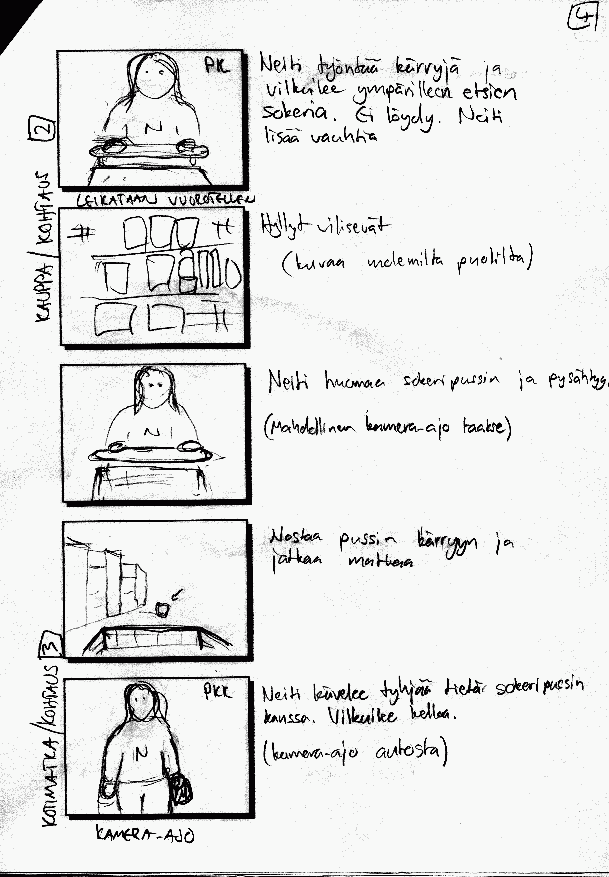 4
KAUPPA / KOHTAUS 2
PK
Neiti työntää kärryjä ja
vilkuilee ympärilleen etsien
sokeria. Ei löydy. Neiti
lisää vauhtia
N
LEIKATAAN VUOROTELLEN
Hyllyt vilisevät
(kuvaa molemilta puolilta)
Neiti huomaa sokeripussin ja pysähtyy.
(Mahdollinen kamera-ajo taakse)
N
Nostaa pussin kärryyn ja
jatkaa matkaa
KOTIMATKA/KOHTAUS 3
PKK
Neiti kävelee tyhjää tietä sokeripussin
kanssa. Vilkuilee kelloa.
(kamera-ajo autosta)
N
KAMERA-AJO